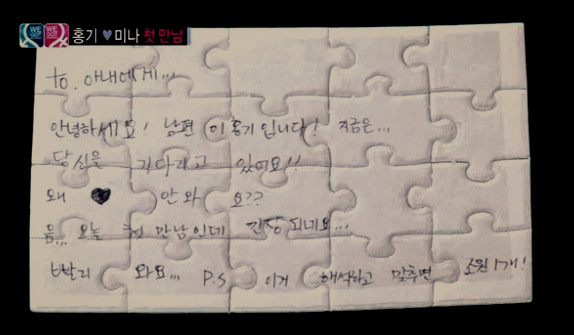 홍기 ♥ 미나 첫 만남
to. 아내에게...
안녕하세요! 남편 이홍기입니다! 지금은...
당신을 기다리고 있어요!!
왜 ♥ 안 와 요??
음... 오늘 첫 만남인데 긴장 되네요...
빨리 와요... P.S 이거 해석하고 맞추면 소원 1개!